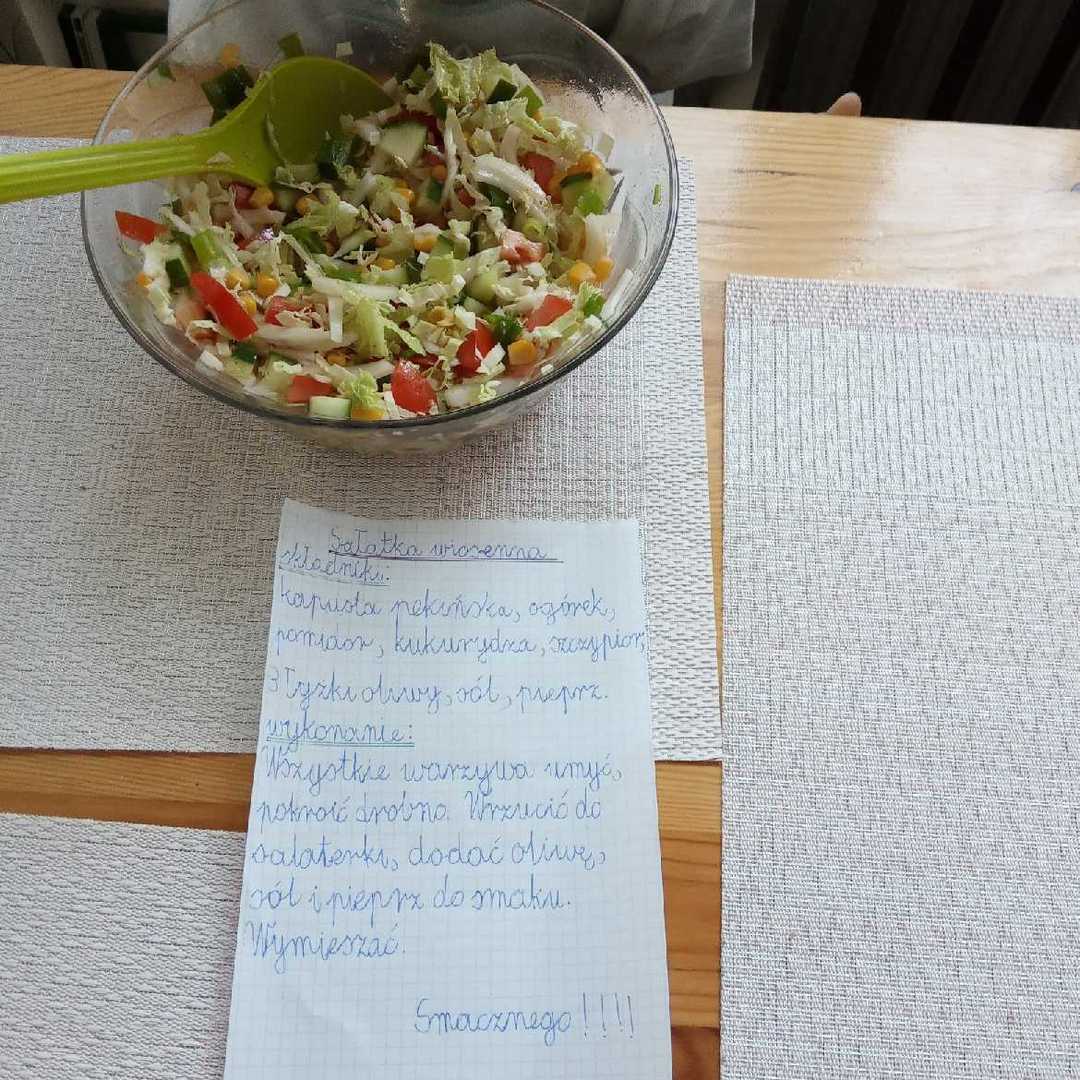 Sałatka wiosenna
składniki:
kapusta pekińska, ogórek,
pomidor, kukurydza, szczypior,
3 łyżki oliwy, sól, pieprz.
wykonanie:
Wszystkie warzywa umyć,
pokroić drobno. Wrzucić do
salaterki, dodać oliwę,
sól i pieprz do smaku.
Wymieszać.
Smacznego!!!!